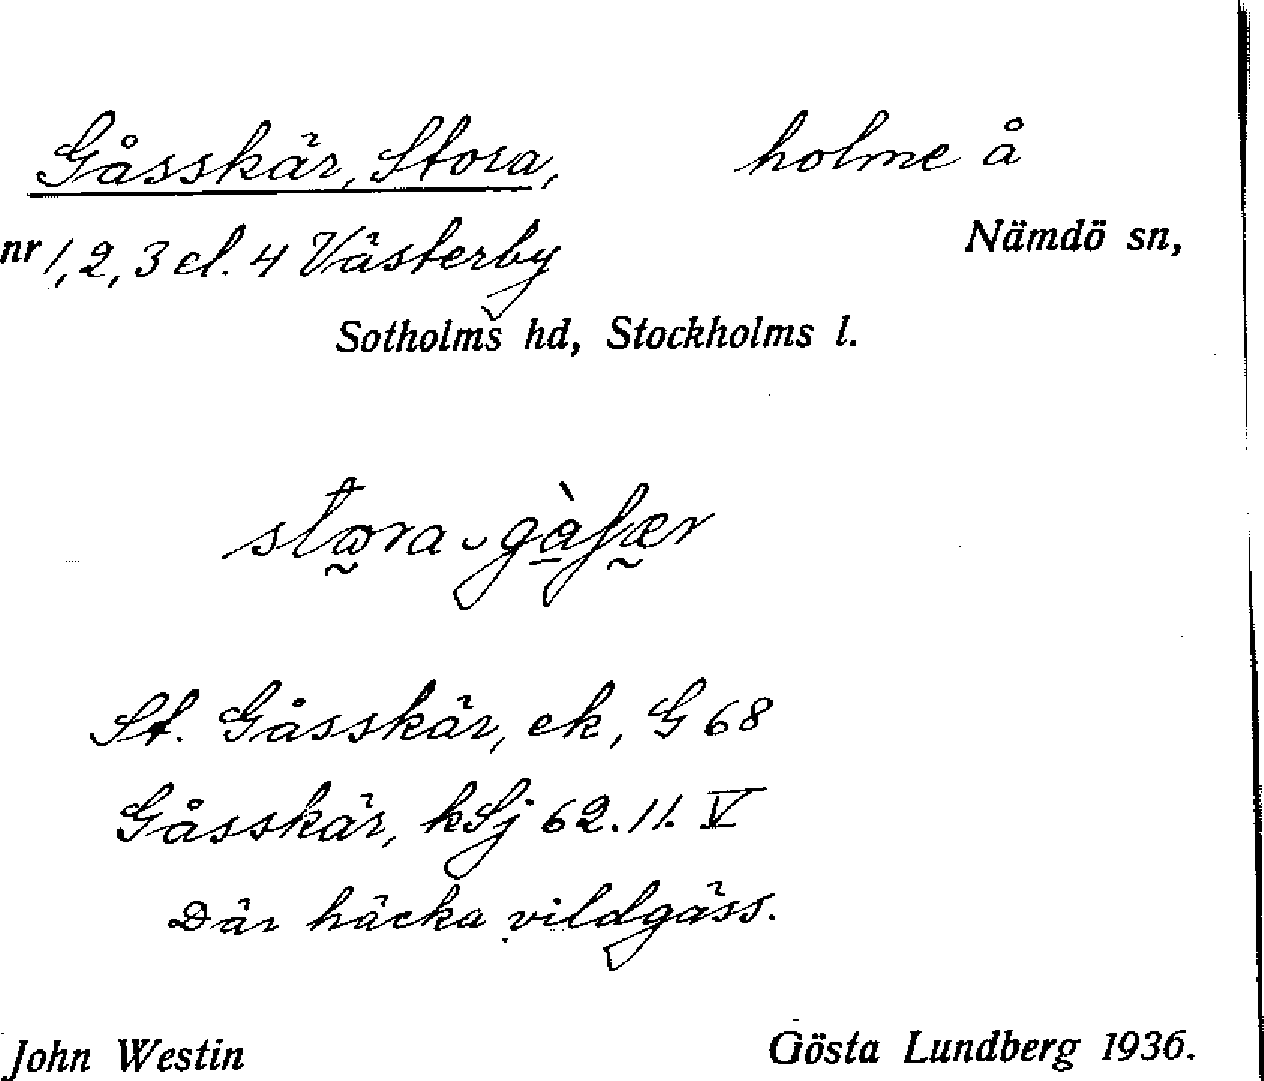 Gåsskär, Stora, holme å
nr 1, 2, 3 el. 4 Västerby Nämdö sn,
Sotholms hd, Stockholms l.
St. Gåsskär, ek, G 68
Gåsskär, kSj 62.11. V
Där häcka vildgäss.
John Westin Gösta Lundberg 1936.